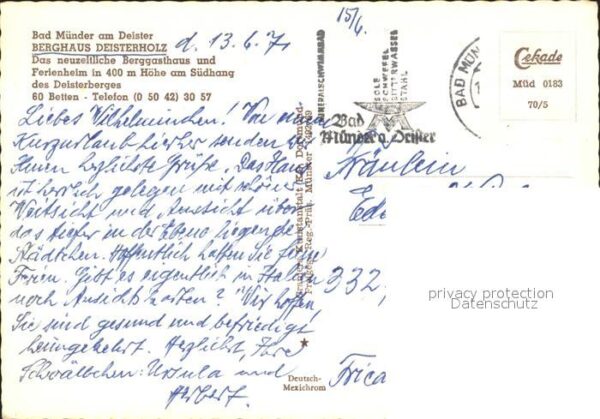 Bad Münder am Deister
BERGHAUS DEISTERHOLZ
Das neuzeitliche Berggasthaus und
Ferienheim in 400 m Höhe am Südhang
des Deisterberges
60 Betten - Telefon (0 50 42) 30 57
d. 13.6.71
15/6.
Liebes Vilhelminchen! Von einem
Kurzurlaub hierher senden wir
Ihnen herzlichste Grüße. Das Haus
ist herrlich gelegen mit schöner
Weitsicht und Aussicht über
das tiefer in der Ebene liegende
Städtchen. Hoffentlich hatten Sie feine
Ferien. Gibt es eigentlich in Italien
noch Ansichtskarten? Wir hoffen,
Sie sind gesund und befriedigt
heimgekehrt. Herzlichst, Ihre
Schwälbchen: Ursula und
Herbert.
MINERALSCHWIMMBAD
SOLE
SCHWEFEL
BITTERWASSER
STAHL
Bad
Münder a. Deister
BAD MÜN
Cekade
Müd 0183
70/5
Fräulein
332
Frica
privacy protection
Datenschutz
Deutsch-
Mexichrom